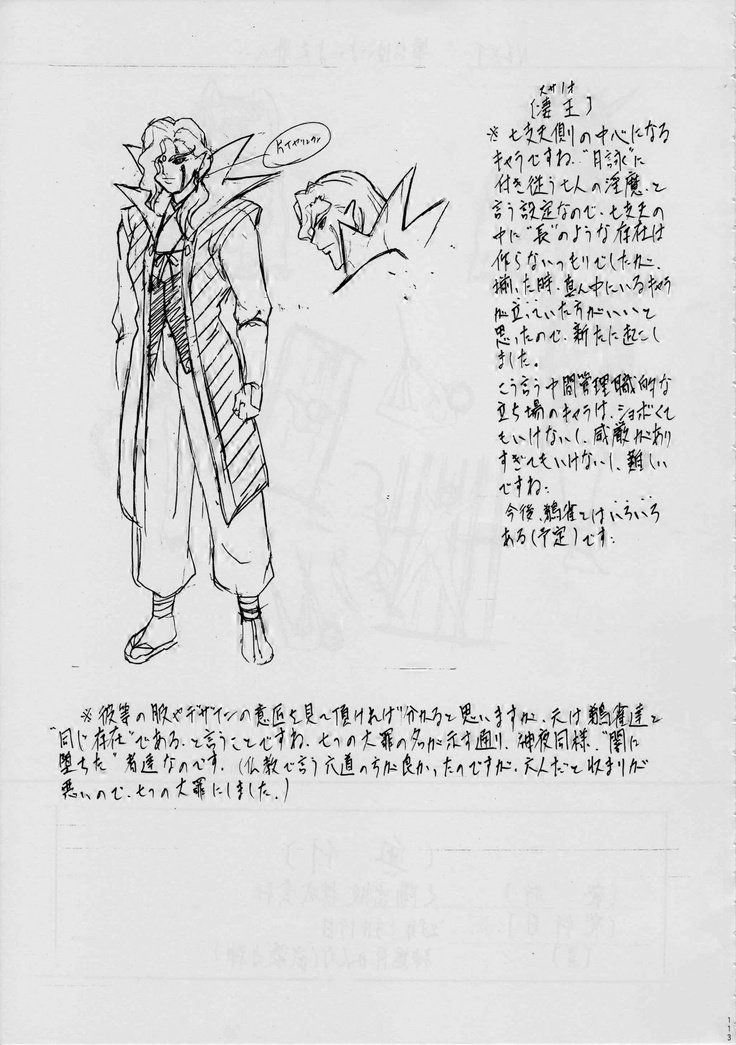 [凄王]
※ 七支天側の中心になる
キャラですね。"目詠"に
付き従う七人の淫魔、と
言う設定なので、七支天の
中に"長"のような存在は
作らないつもりでしたが、
揃った時、真ん中にいるキャラ
が立っていた方がいいと
思ったので、新たに起こし
ました。
こう言う中間管理職的な
立ち場のキャラは、ショボくて
もいけないし、威厳があり
すぎてもいけないし、難しい
ですね。
今後、鵺雀とはいろいろ
ある(予定)です。
片イヤリング
※ 彼等の服やデザインの意匠を見て頂ければ分かると思いますが、元は鵺雀達と
"同じ存在"である、と言うことですね。七つの大罪の名が示す通り、神夜同様、"闇に
堕ちた"者達なのです。(仏教で言う六道の方が良かったのですが、六人だと収まりが
悪いので、七つの大罪にしました。)
113